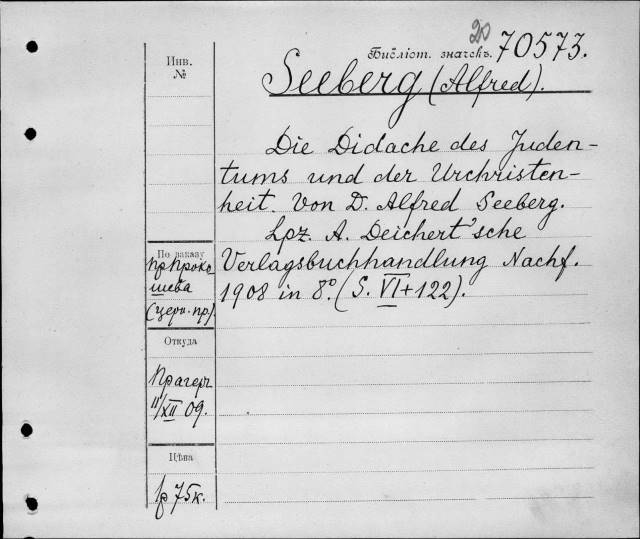 20
Библіот. значекъ. 70573.
Инв.
№
Seeberg (Alfred).
Die Didache des Juden-
tums und der Urchristen-
heit. Von D. Alfred Seeberg.
Lpz. A. Deichert'sche
Verlagsbuchhandlung Nachf.
1908 in 8º. (S. VI + 122).
По заказу
пр Проко
шева
(церк. пр).
Откуда
Прагеръ
11/XII 09.
Цѣна
75 к.